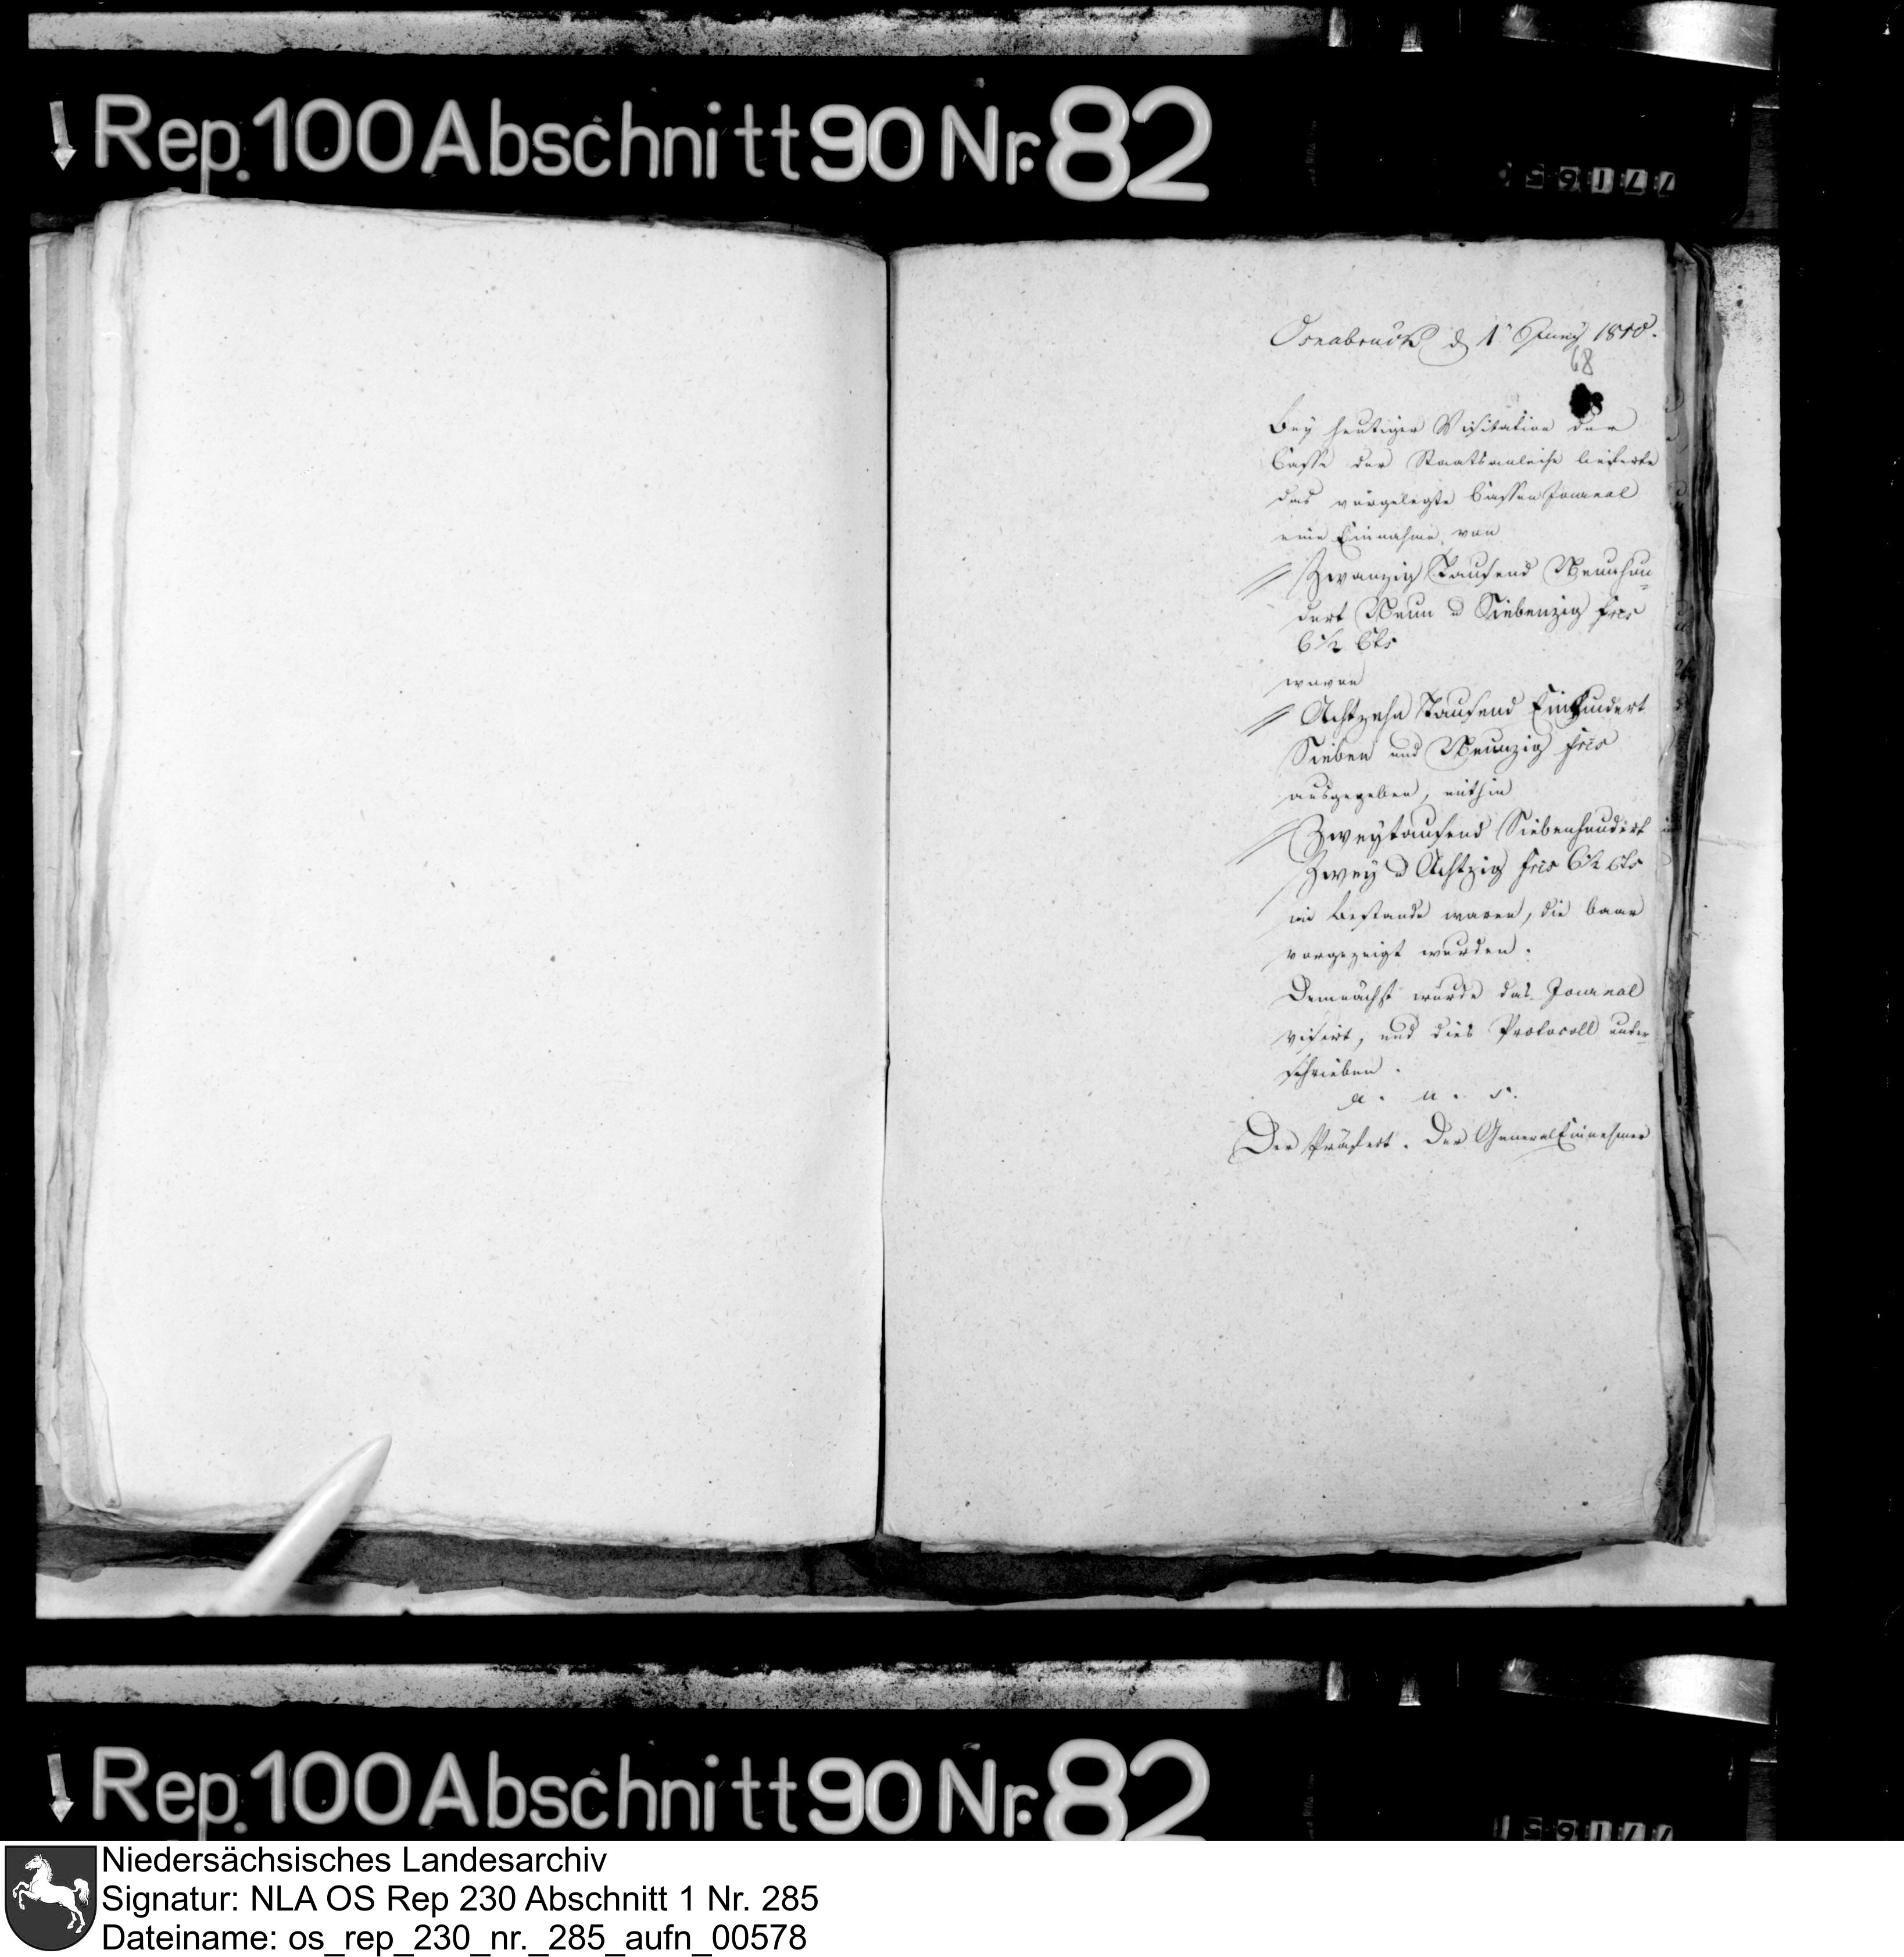 Rep. 100 Abschnitt 90 Nr. 82
Osnabrück d 1n Juny 1810.
68
Bey heutiger Visitation der
Casse der Staatsanleihe lieferte
das vorgelegte Cassen Journal
eine Einnahme von
Zwanzig Tausend Neunhun-
dert Neun u Siebenzig frcs
6½ Cts
waren
Achtzehn Tausend Einhundert
Sieben und Neunzig frcs
ausgegeben, mithin
Zweytausend Siebenhundert
Zwey u Achtzig frcs 6½ Cts
im Bestande waren, die baar
vorgezeigt wurden.
Demnächst wurde das Journal
visirt, und dies Protocoll unter-
schrieben.
a. u. s.
Der Präfect. Der General Einnehmer
Rep. 100 Abschnitt 90 Nr. 82
Niedersächsisches Landesarchiv
Signatur: NLA OS Rep 230 Abschnitt 1 Nr. 285
Dateiname: os_rep_230_nr._285_aufn_00578